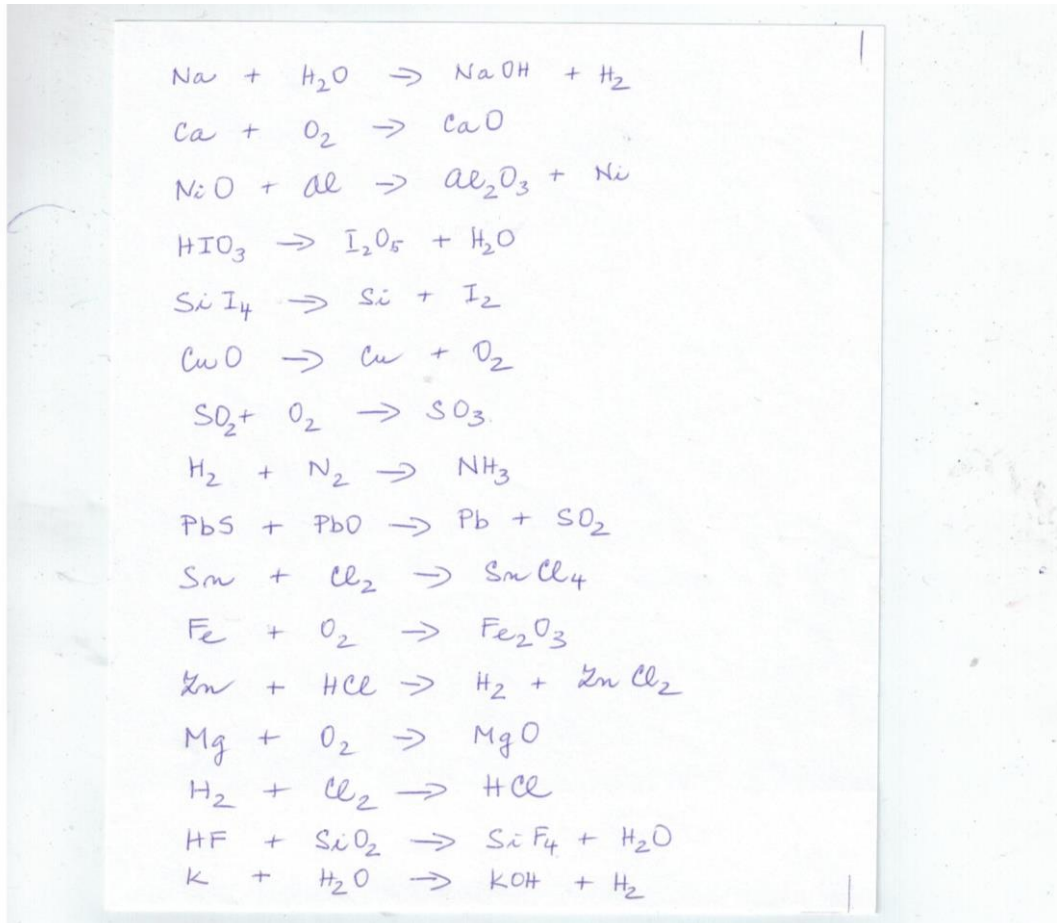 Na + H₂O → NaOH + H₂
Ca + O₂ → CaO
NiO + Al → Al₂O₃ + Ni
HIO₃ → I₂O₅ + H₂O
SiI₄ → Si + I₂
CuO → Cu + O₂
SO₂ + O₂ → SO₃.
H₂ + N₂ → NH₃
PbS + PbO → Pb + SO₂
Sn + Cl₂ → SnCl₄
Fe + O₂ → Fe₂O₃
Zn + HCl → H₂ + ZnCl₂
Mg + O₂ → MgO
H₂ + Cl₂ → HCl
HF + SiO₂ → SiF₄ + H₂O
K + H₂O → KOH + H₂